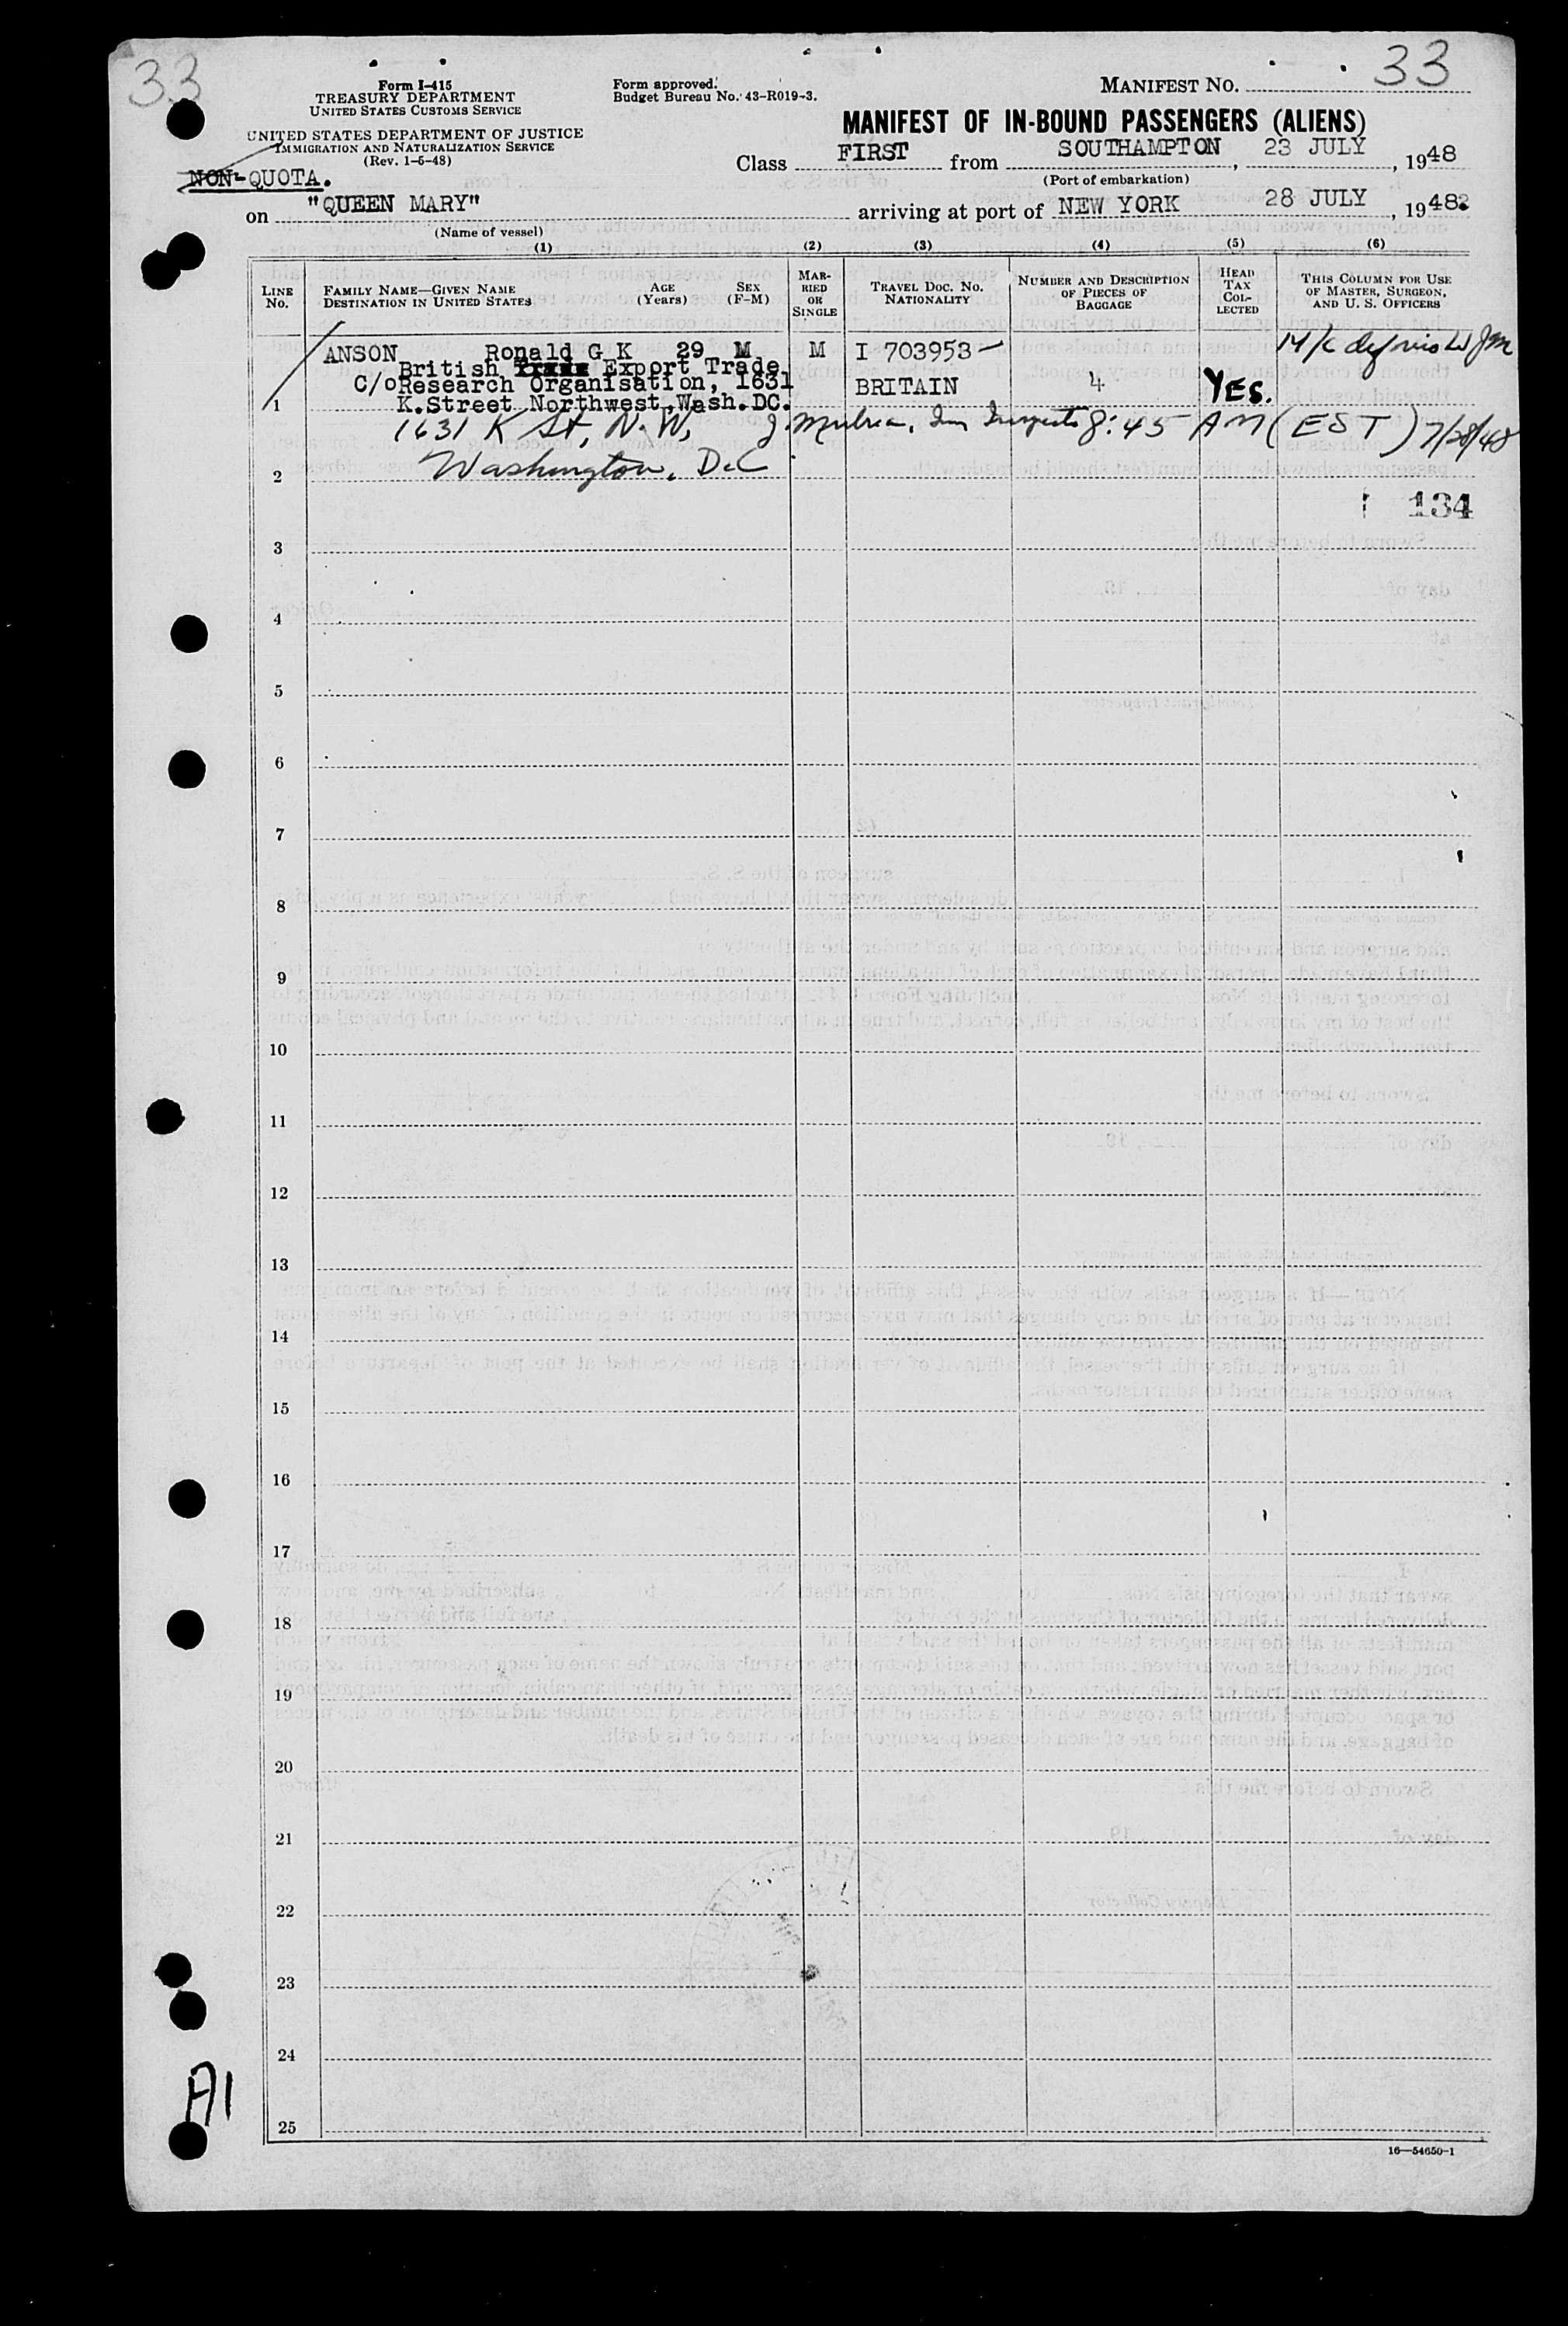 33
33
Form I-415
TREASURY DEPARTMENT
UNITED STATES CUSTOMS SERVICE
UNITED STATES DEPARTMENT OF JUSTICE
IMMIGRATION AND NATURALIZATION SERVICE
(Rev. 1-5-48)
NON-QUOTA.
Form approved.
Budget Bureau No. 43-R019-3.
MANIFEST NO.
MANIFEST OF IN-BOUND PASSENGERS (ALIENS)
Class FIRST from SOUTHAMPTON, 23 JULY, 1948
(Port of embarkation)
on "QUEEN MARY" arriving at port of NEW YORK 28 JULY, 1948
(Name of vessel)
(1) (2) (3) (4) (5) (6)
LINE NO.
FAMILY NAME—GIVEN NAME
DESTINATION IN UNITED STATES
AGE (Years)
SEX (F-M)
MARRIED OR SINGLE
TRAVEL DOC. NO. NATIONALITY
NUMBER AND DESCRIPTION OF PIECES OF BAGGAGE
HEAD TAX COLLECTED
THIS COLUMN FOR USE OF MASTER, SURGEON, AND U. S. OFFICERS
ANSON Ronald G K 29 M M I 703953
British Export Trade
C/o Research Organisation, 1631 BRITAIN 4 YES.
1 K.Street Northwest.Wash.DC.
1631 K St, N.W, 8:45 AM (EST) 7/28/48
Washington, D.C
2
134
3
4
5
6
7
8
9
10
11
12
13
14
15
16
17
18
19
20
21
22
23
24
25
A1
16—54650-1